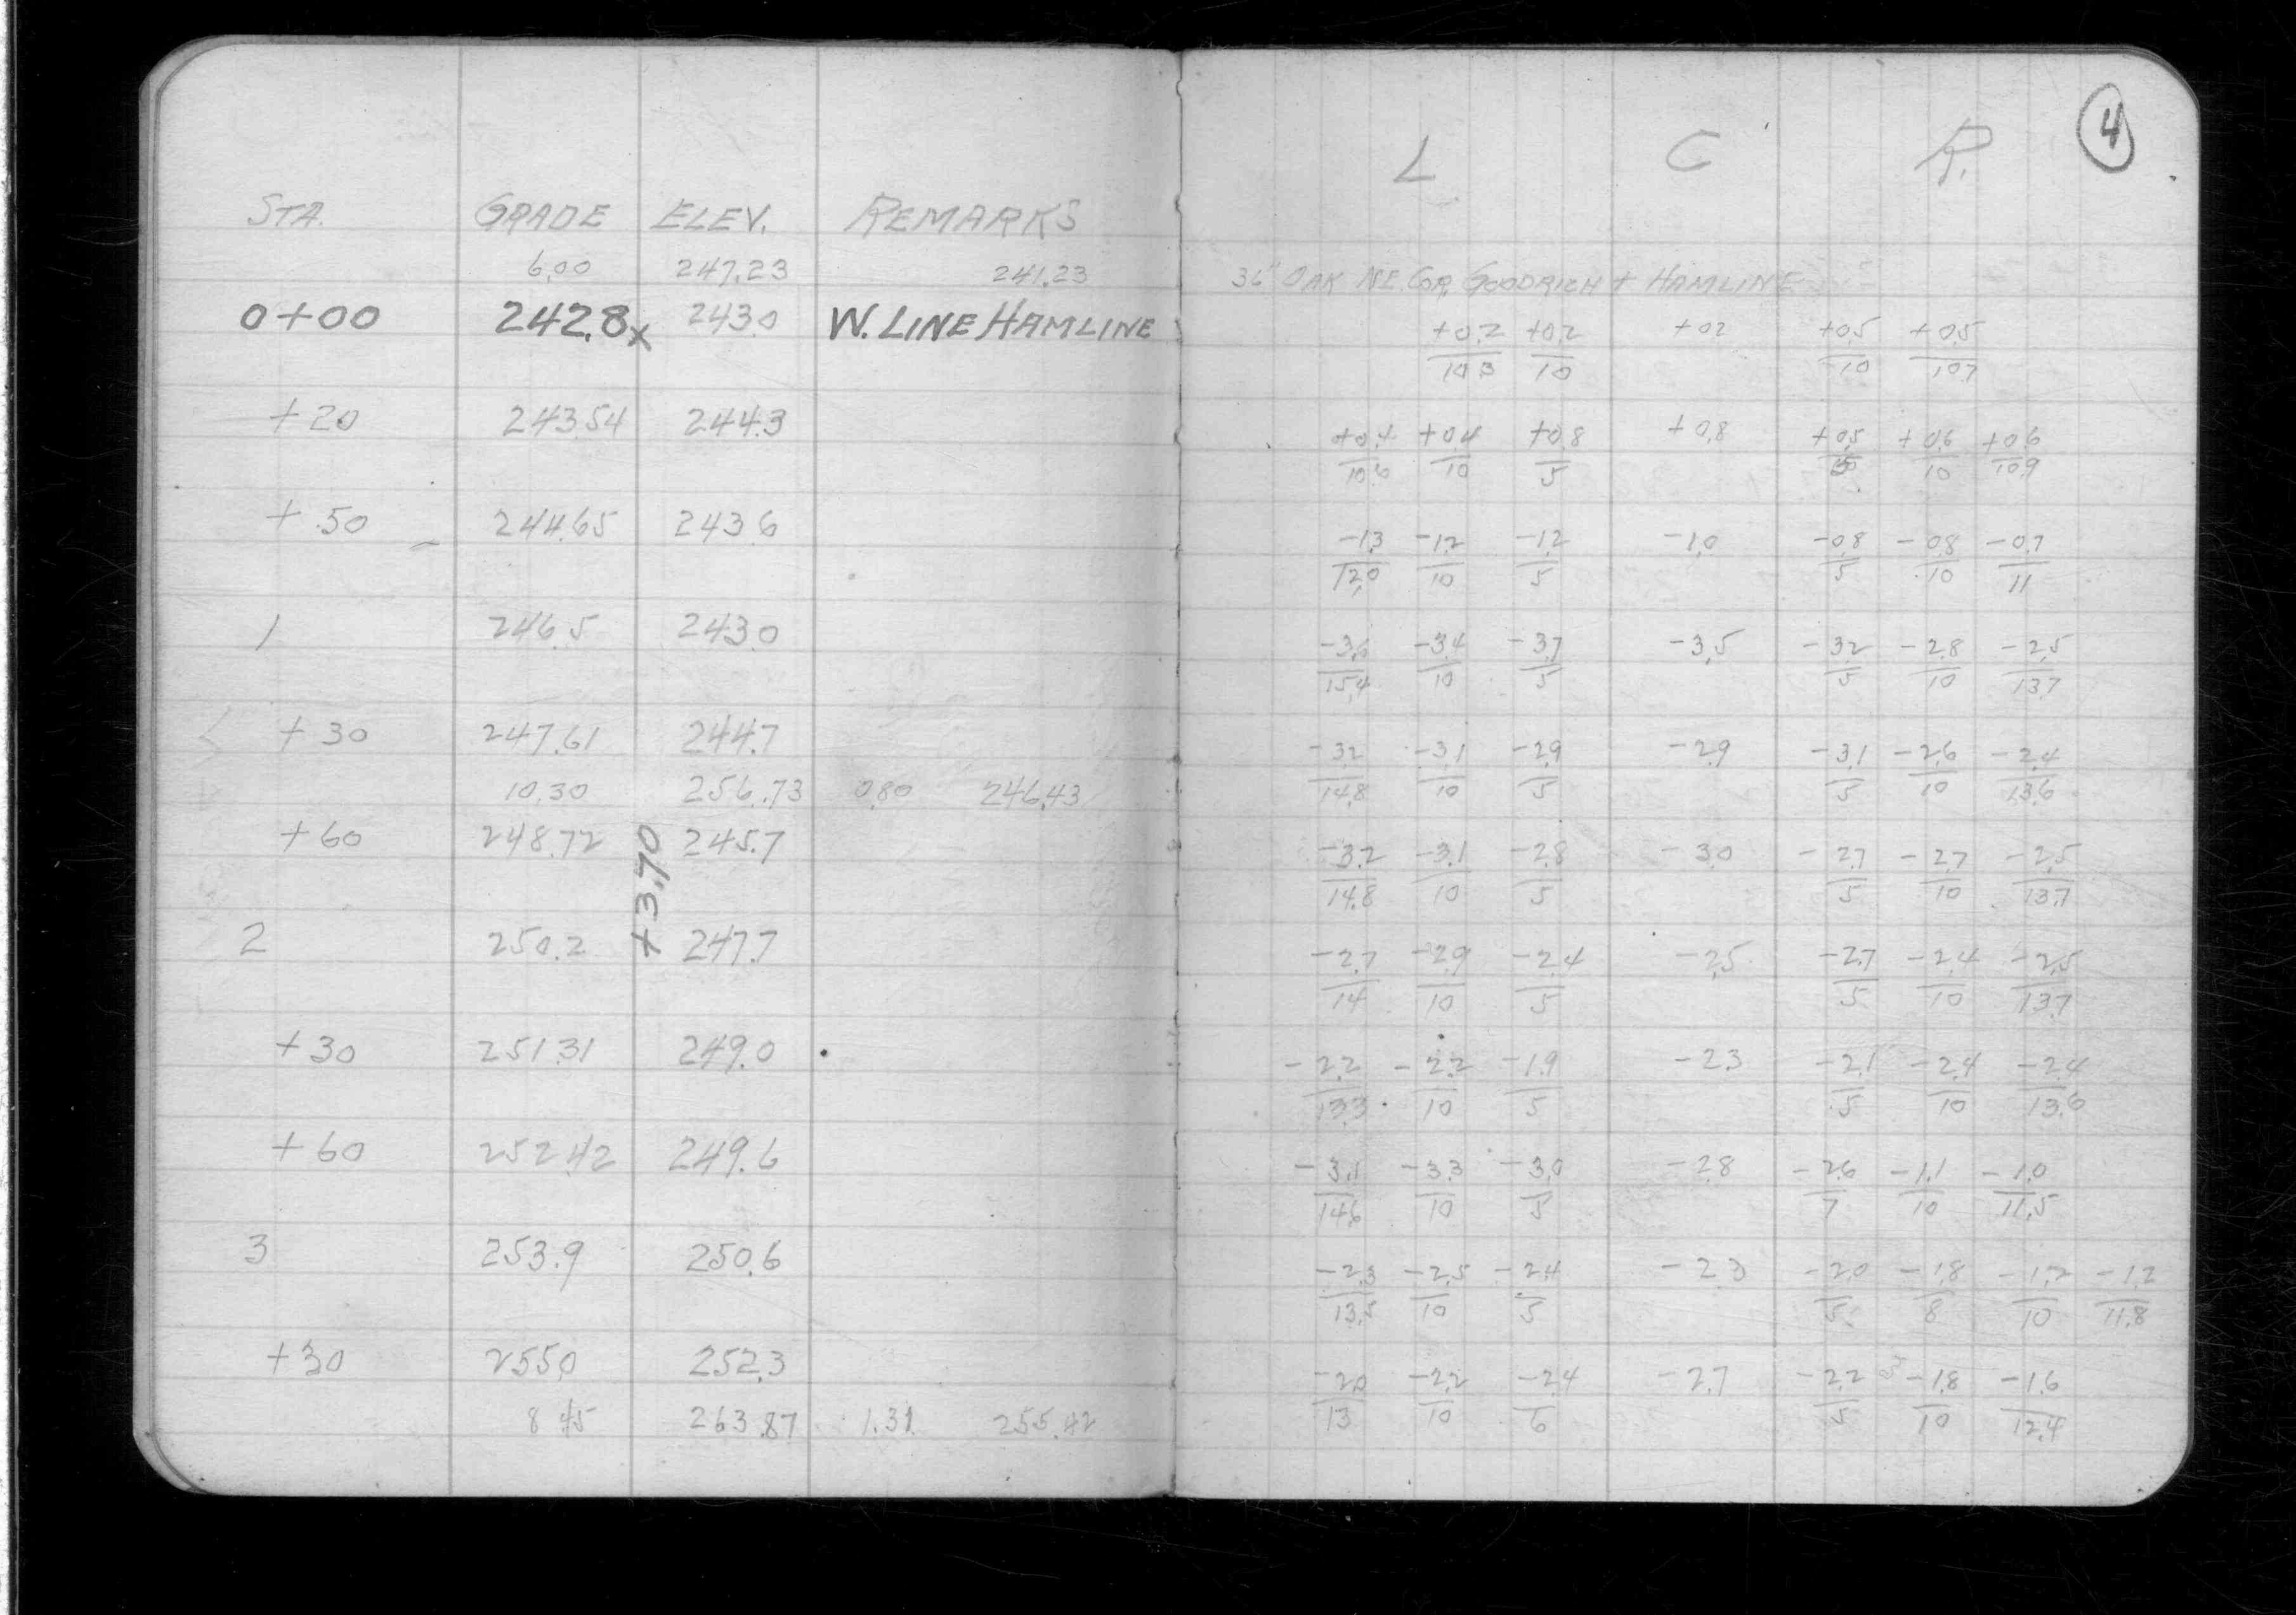 4
L C R.
STA. GRADE ELEV. REMARKS
6.00 247.23 241.23 36" OAK NE. COR. GOODRICH + HAMLINE
0+00 242.8x 243.0 W. LINE HAMLINE +0.2/10.3 +0.2/10 +0.2 +0.5/10 +0.5/10.7
+20 243.54 244.3 +0.4/10.6 +0.4/10 +0.8/5 +0.8 +0.5/5 +0.6/10 +0.6/10.9
+50 244.65 243.6 -1.3/12.0 -1.2/10 -1.2/5 -1.0 -0.8/5 -0.8/10 -0.7/11
1 246.5 243.0 -3.6/15.4 -3.4/10 -3.7/5 -3.5 -3.2/5 -2.8/10 -2.5/13.7
+30 247.61 244.7 -3.2/14.8 -3.1/10 -2.9/5 -2.9 -3.1/5 -2.6/10 -2.4/13.6
10.30 256.73 0.80 246.43
+60 248.72 245.7 -3.2/14.8 -3.1/10 -2.8/5 -3.0 -2.7/5 -2.7/10 -2.5/13.7
+3.70
2 250.2 247.7 -2.7/14 -2.9/10 -2.4/5 -2.5 -2.7/5 -2.4/10 -2.5/13.7
+30 251.31 249.0 -2.2/13.3 -2.2/10 -1.9/5 -2.3 -2.1/5 -2.4/10 -2.4/13.6
+60 252.42 249.6 -3.1/14.6 -3.3/10 -3.0/5 -2.8 -2.6/7 -1.1/10 -1.0/11.5
3 253.9 250.6 -2.3/13.5 -2.5/10 -2.4/5 -2.3 -2.0/5 -1.8/8 -1.2/10 -1.2/11.8
+30 255.0 252.3 -2.0/13 -2.2/10 -2.4/6 -2.7 -2.2/5 -1.8/10 -1.6/12.4
8.45 263.87 1.31 255.42